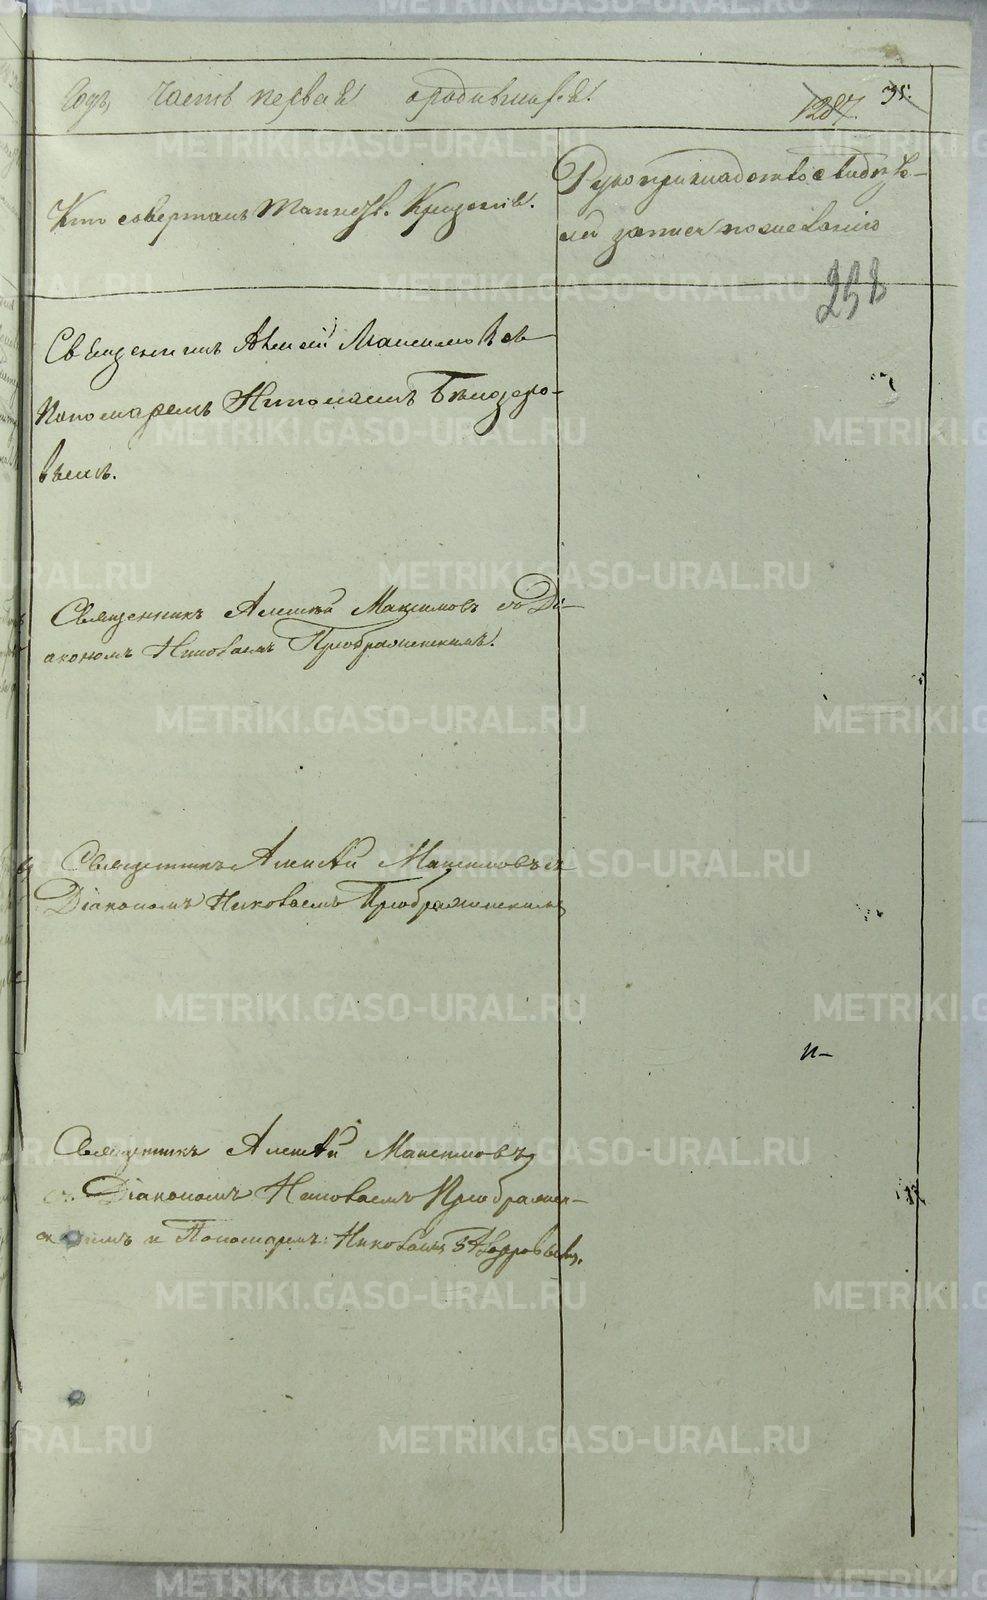 Годъ, часть первая о родившихся.
1287. 35.
Кто совершалъ таинст. крещенія.
Рукоприкладство свидѣте-
лей записи по желанію
258
Священникъ Алексій Максимовъ съ
Пономаремъ Николаемъ Бѣлозеро-
вымъ.
Священникъ Алексѣй Максимовъ съ Ді-
акономъ Николаемъ Преображенскимъ.
Священникъ Алексѣй Максимовъ съ
Діакономъ Николаемъ Преображенскимъ
Священникъ Алексѣй Максимовъ
съ Діакономъ Николаемъ Преображен-
скимъ и Пономаремъ Николаемъ
METRIKI.GASO-URAL.RU